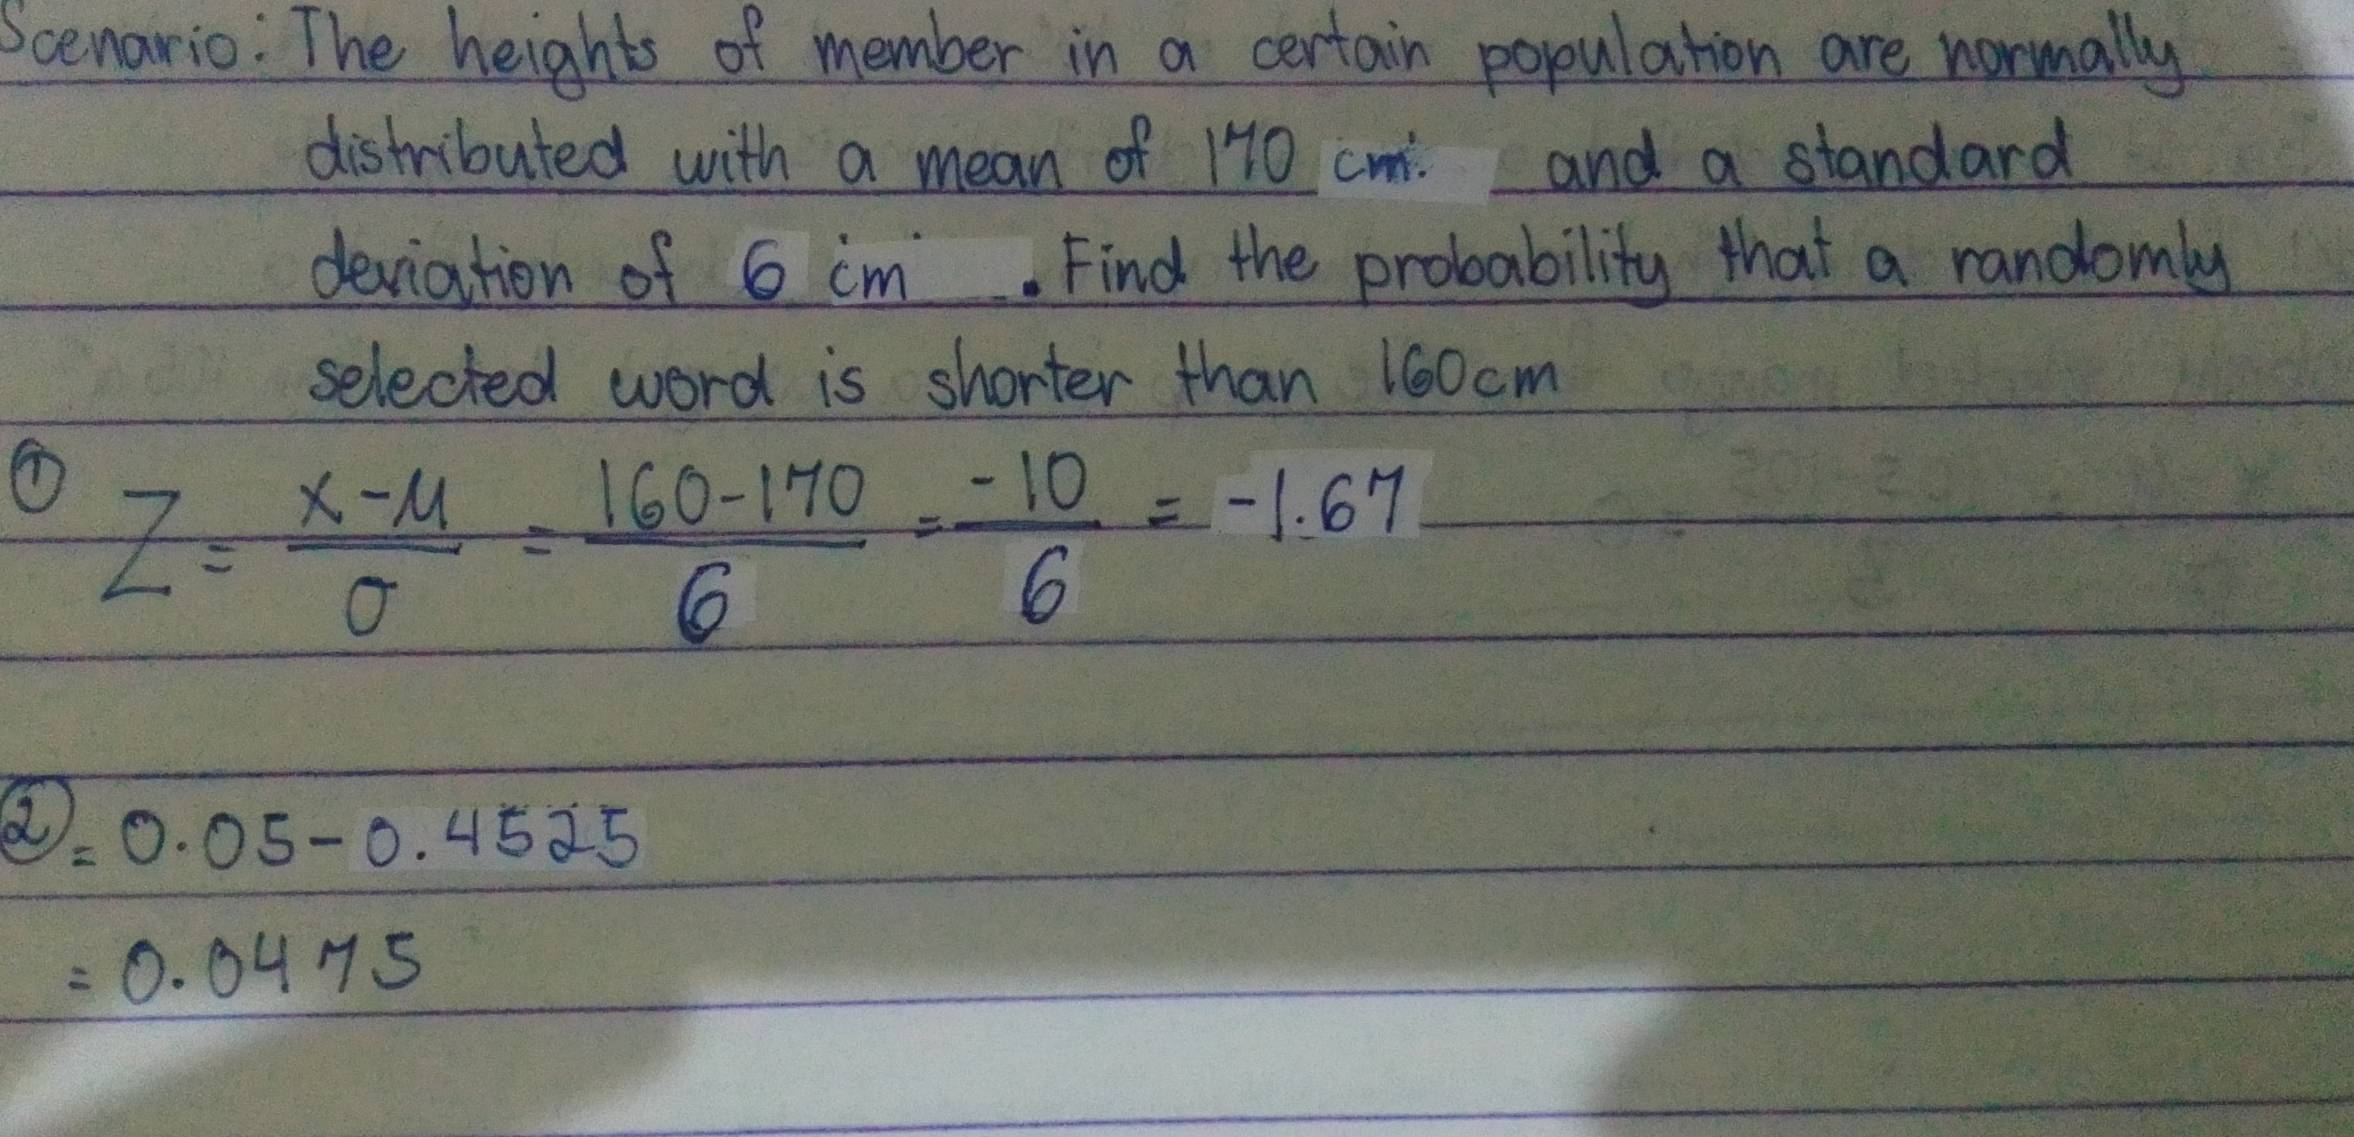 Scenario: The heights of member in a certain population are normally
distributed with a mean of 170 cm. and a standard
deviation of 6 cm . Find the probability that a randomly
selected word is shorter than 160cm
① Z = x-μ/σ = 160-170/6 = -10/6 = -1.67
② = 0.05-0.4525
= 0.0475